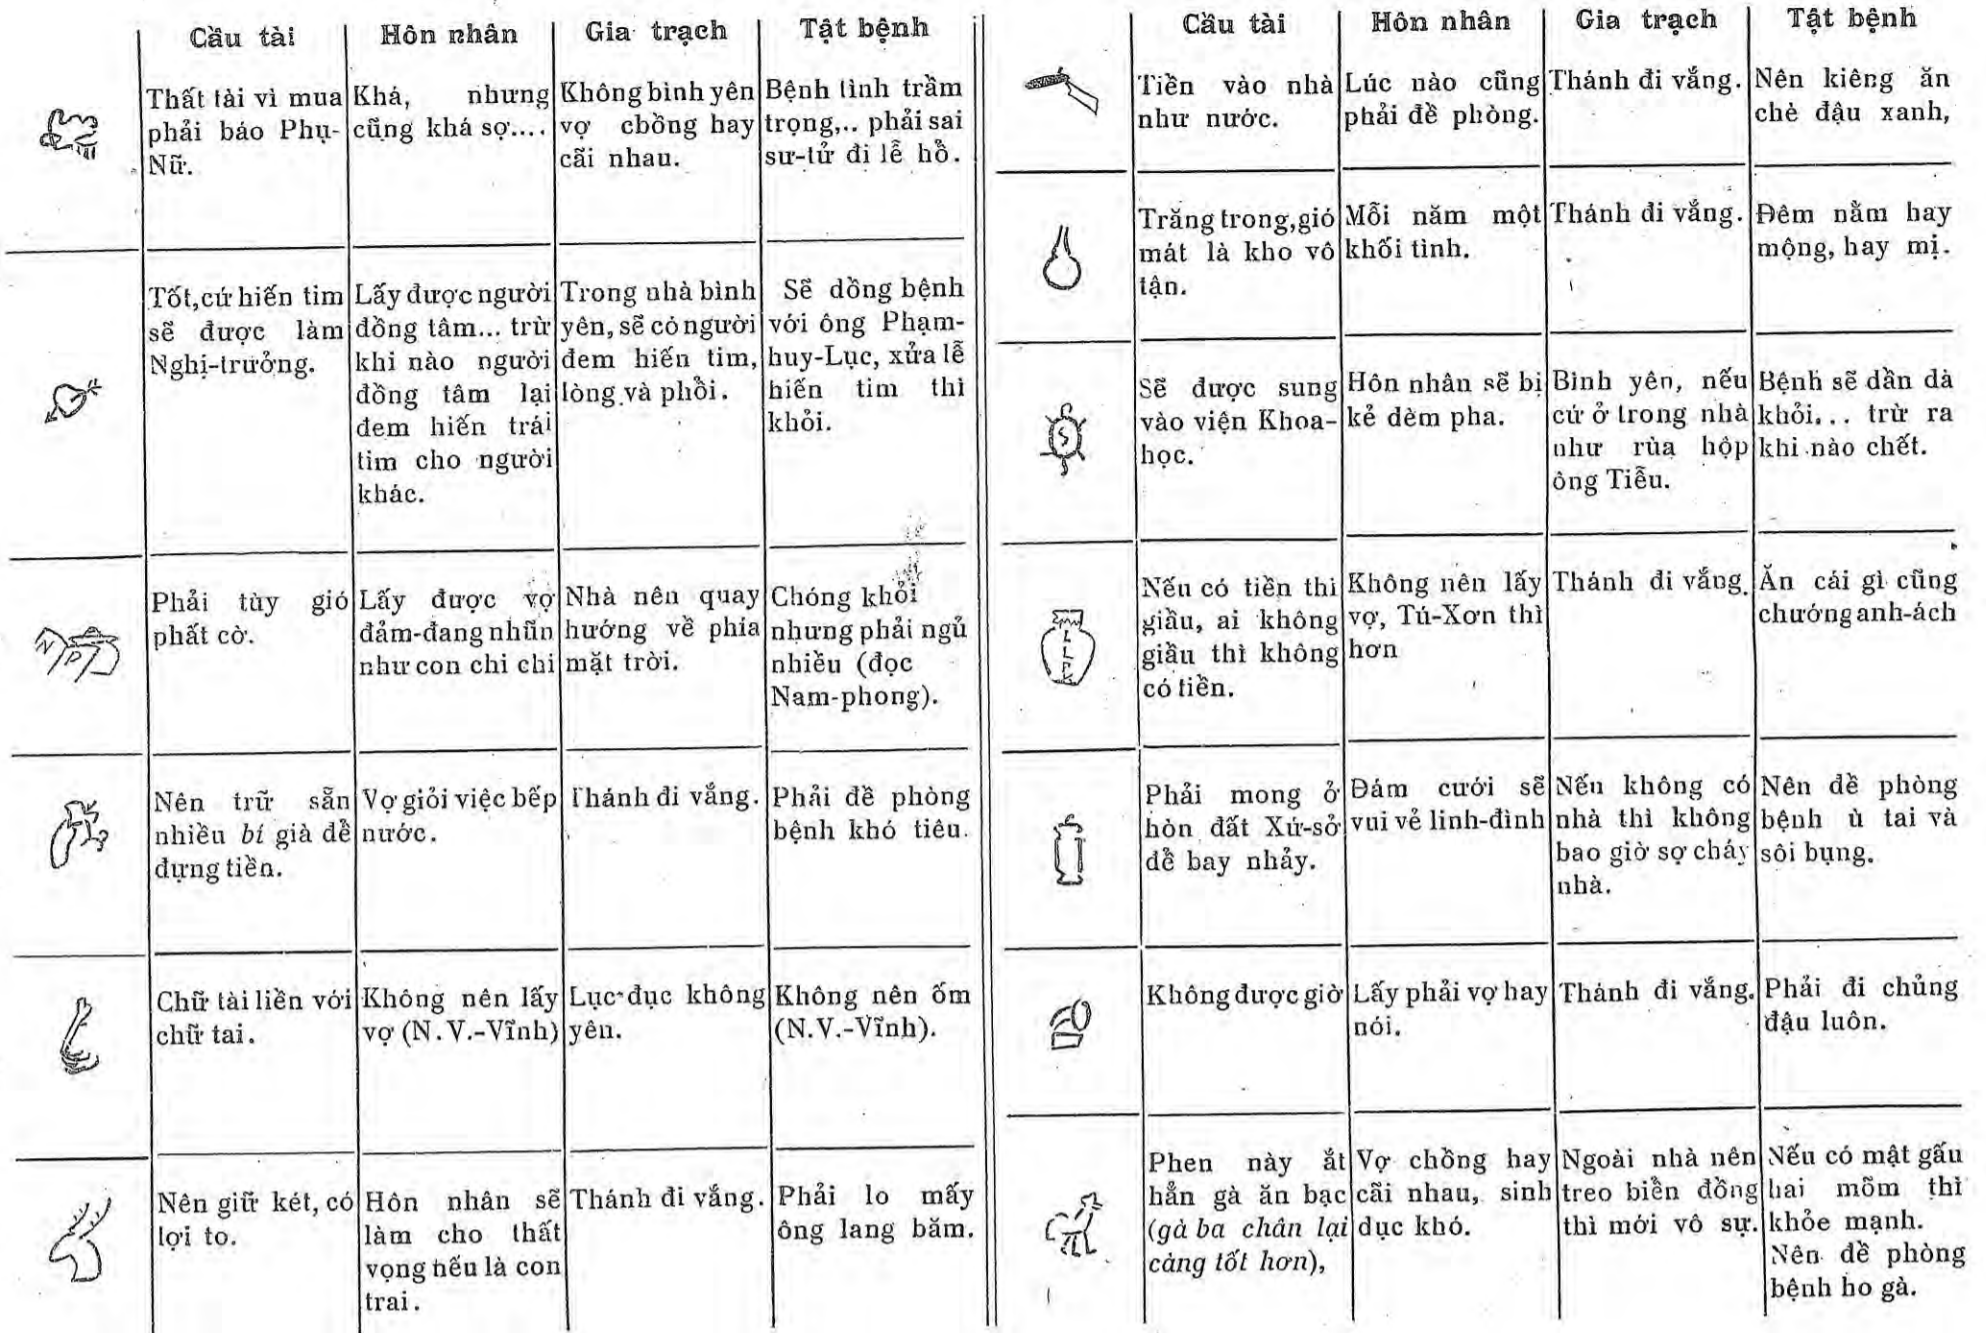 Cầu tài | Hôn nhân | Gia trạch | Tật bệnh
Thất tài vì mua
phải báo Phụ-
Nữ.
Khá, nhưng
cũng khá sợ....
Không bình yên
vợ chồng hay
cãi nhau.
Bệnh tình trầm
trọng,.. phải sai
sư-tử đi lễ hồ.
Tốt, cứ hiến tim
sẽ được làm
Nghị-trưởng.
Lấy được người
đồng tâm... trừ
khi nào người
đồng tâm lại
đem hiến trái
tim cho người
khác.
Trong nhà bình
yên, sẽ có người
đem hiến tim,
lòng và phồi.
Sẽ dồng bệnh
với ông Phạm-
huy-Lục, xửa lễ
hiến tim thì
khỏi.
N P
Phải tùy gió
phất cờ.
Lấy được vợ
đảm-đang nhũn
như con chi chi
Nhà nên quay
hướng về phia
mặt trời.
Chóng khỏi
nhưng phải ngủ
nhiều (đọc
Nam-phong).
Nên trữ sẵn
nhiều bí già đề
đựng tiền.
Vợ giỏi việc bếp
nước.
Thánh đi vắng.
Phải đề phòng
bệnh khó tiêu.
Chữ tài liền với
chữ tai.
Không nên lấy
vợ (N.V.-Vĩnh)
Lục-đục không
yên.
Không nên ốm
(N.V.-Vĩnh).
Nên giữ két, có
lợi to.
Hôn nhân sẽ
làm cho thất
vọng nếu là con
trai.
Thánh đi vắng.
Phải lo mấy
ông lang băm.
Cầu tài | Hôn nhân | Gia trạch | Tật bệnh
Tiền vào nhà
như nước.
Lúc nào cũng
phải đề phòng.
Thánh đi vắng.
Nên kiêng ăn
chè đậu xanh,
Trăng trong, gió
mát là kho vô
tận.
Mỗi năm một
khối tình.
Thánh đi vắng.
Đêm nằm hay
mộng, hay mị.
S
Sẽ được sung
vào viện Khoa-
học.
Hôn nhân sẽ bị
kẻ dèm pha.
Bình yên, nếu
cứ ở trong nhà
như rùa hộp
ông Tiễu.
Bệnh sẽ dần dà
khỏi... trừ ra
khi nào chết.
Nếu có tiền thi
giầu, ai không
giầu thì không
có tiền.
Không nên lấy
vợ, Tú-Xơn thì
hơn
Thánh đi vắng.
Ăn cái gì cũng
chướng anh-ách
Phải mong ở
hòn đất Xứ-sở
dề bay nhảy.
Đám cưới sẽ
vui vẻ linh-đình
Nếu không có
nhà thì không
bao giờ sợ cháy
nhà.
Nên đề phòng
bệnh ù tai và
sôi bụng.
Không được giờ
Lấy phải vợ hay
nói.
Thánh đi vắng.
Phải đi chủng
đậu luôn.
Phen này ắt
hẳn gà ăn bạc
(gà ba chân lại
càng tốt hơn),
Vợ chồng hay
cãi nhau, sinh
dục khó.
Ngoài nhà nên
treo biền đồng
thì mới vô sự.
Nếu có mật gấu
hai mõm thì
khỏe mạnh.
Nên đề phòng
bệnh ho gà.